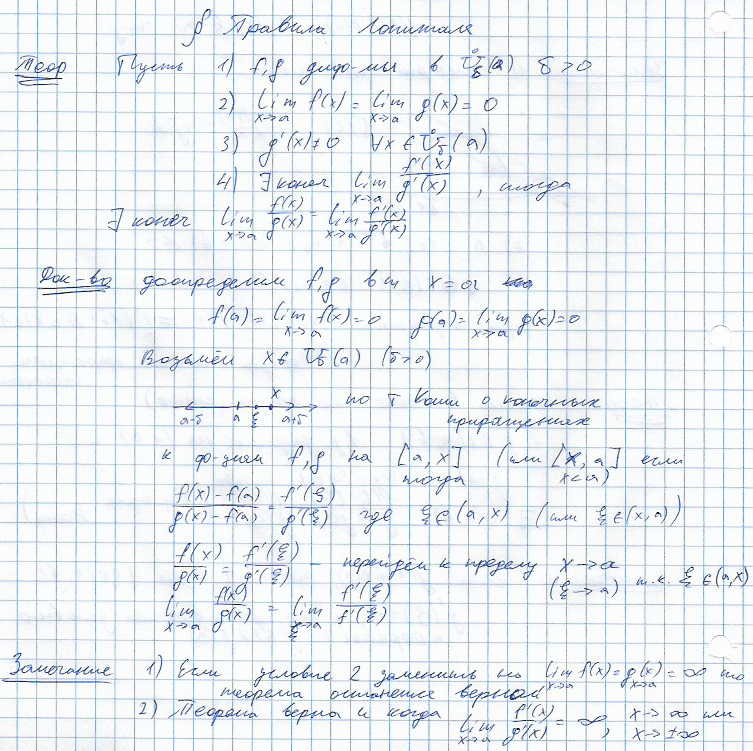 § Правила Лопиталя
Теор Пусть 1) f, g диф-мы в Ů_δ(a) δ>0
2) lim_{x→a} f(x) = lim_{x→a} g(x) = 0
3) g'(x) ≠ 0 ∀x ∈ Ů_δ(a)
4) ∃ конеч lim_{x→a} f'(x)/g'(x), тогда
∃ конеч lim_{x→a} f(x)/g(x) = lim_{x→a} f'(x)/g'(x)
Док-во доопределим f, g в т x = a
f(a) = lim_{x→a} f(x) = 0 g(a) = lim_{x→a} g(x) = 0
Возьмём x ∈ U_δ(a) (δ>0)
a-δ a ξ x a+δ по т Коши о конечных
приращениях
к фо-циям f, g на [a, x] (или [x, a] если
тогда x<a)
f(x)-f(a)/g(x)-f(a) = f'(ξ)/g'(ξ) где ξ∈(a, x) (или ξ∈(x, a))
f(x)/g(x) = f'(ξ)/g'(ξ) - перейдём к пределу x→a
(ξ→a) т.к. ξ∈(a, x)
lim_{x→a} f(x)/g(x) = lim_{ξ→a} f'(ξ)/f'(ξ)
Замечание 1) Если условие 2 заменить на lim_{x→a} f(x) = g(x)_{x→a} = ∞ то
теорема останется верной
2) Теорема верна и когда lim_{x→a} f'(x)/g'(x) = ∞, x→∞ или
x→±∞